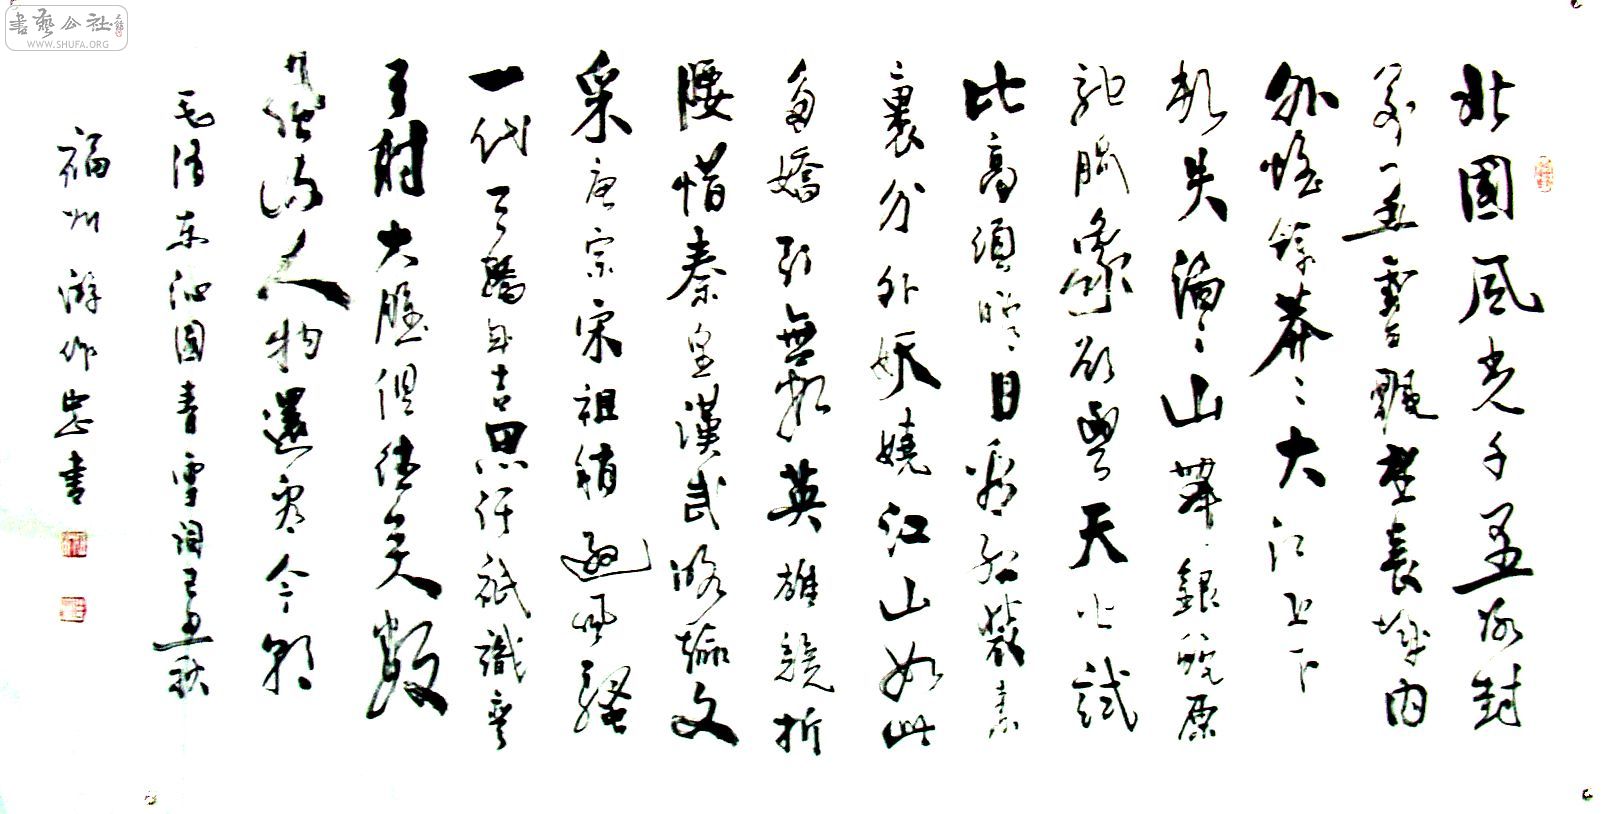 北國風光千里冰封
萬里雪飄望長城內
外惟餘莽〻大江上下
頓失滔〻山舞銀蛇原
馳臘象欲與天公試
比高須晴日看紅裝素
裹分外妖嬈江山如此
多嬌引無數英雄競折
腰惜秦皇漢武略輸文
采唐宗宋祖稍遜風騷
一代天驕成吉思汗祇識彎
弓射大雕俱往矣數
風流人物還看今朝
毛澤東沁園春雪詞己丑秋
福州游作書
書藝公社
WWW.SHUFA.ORG